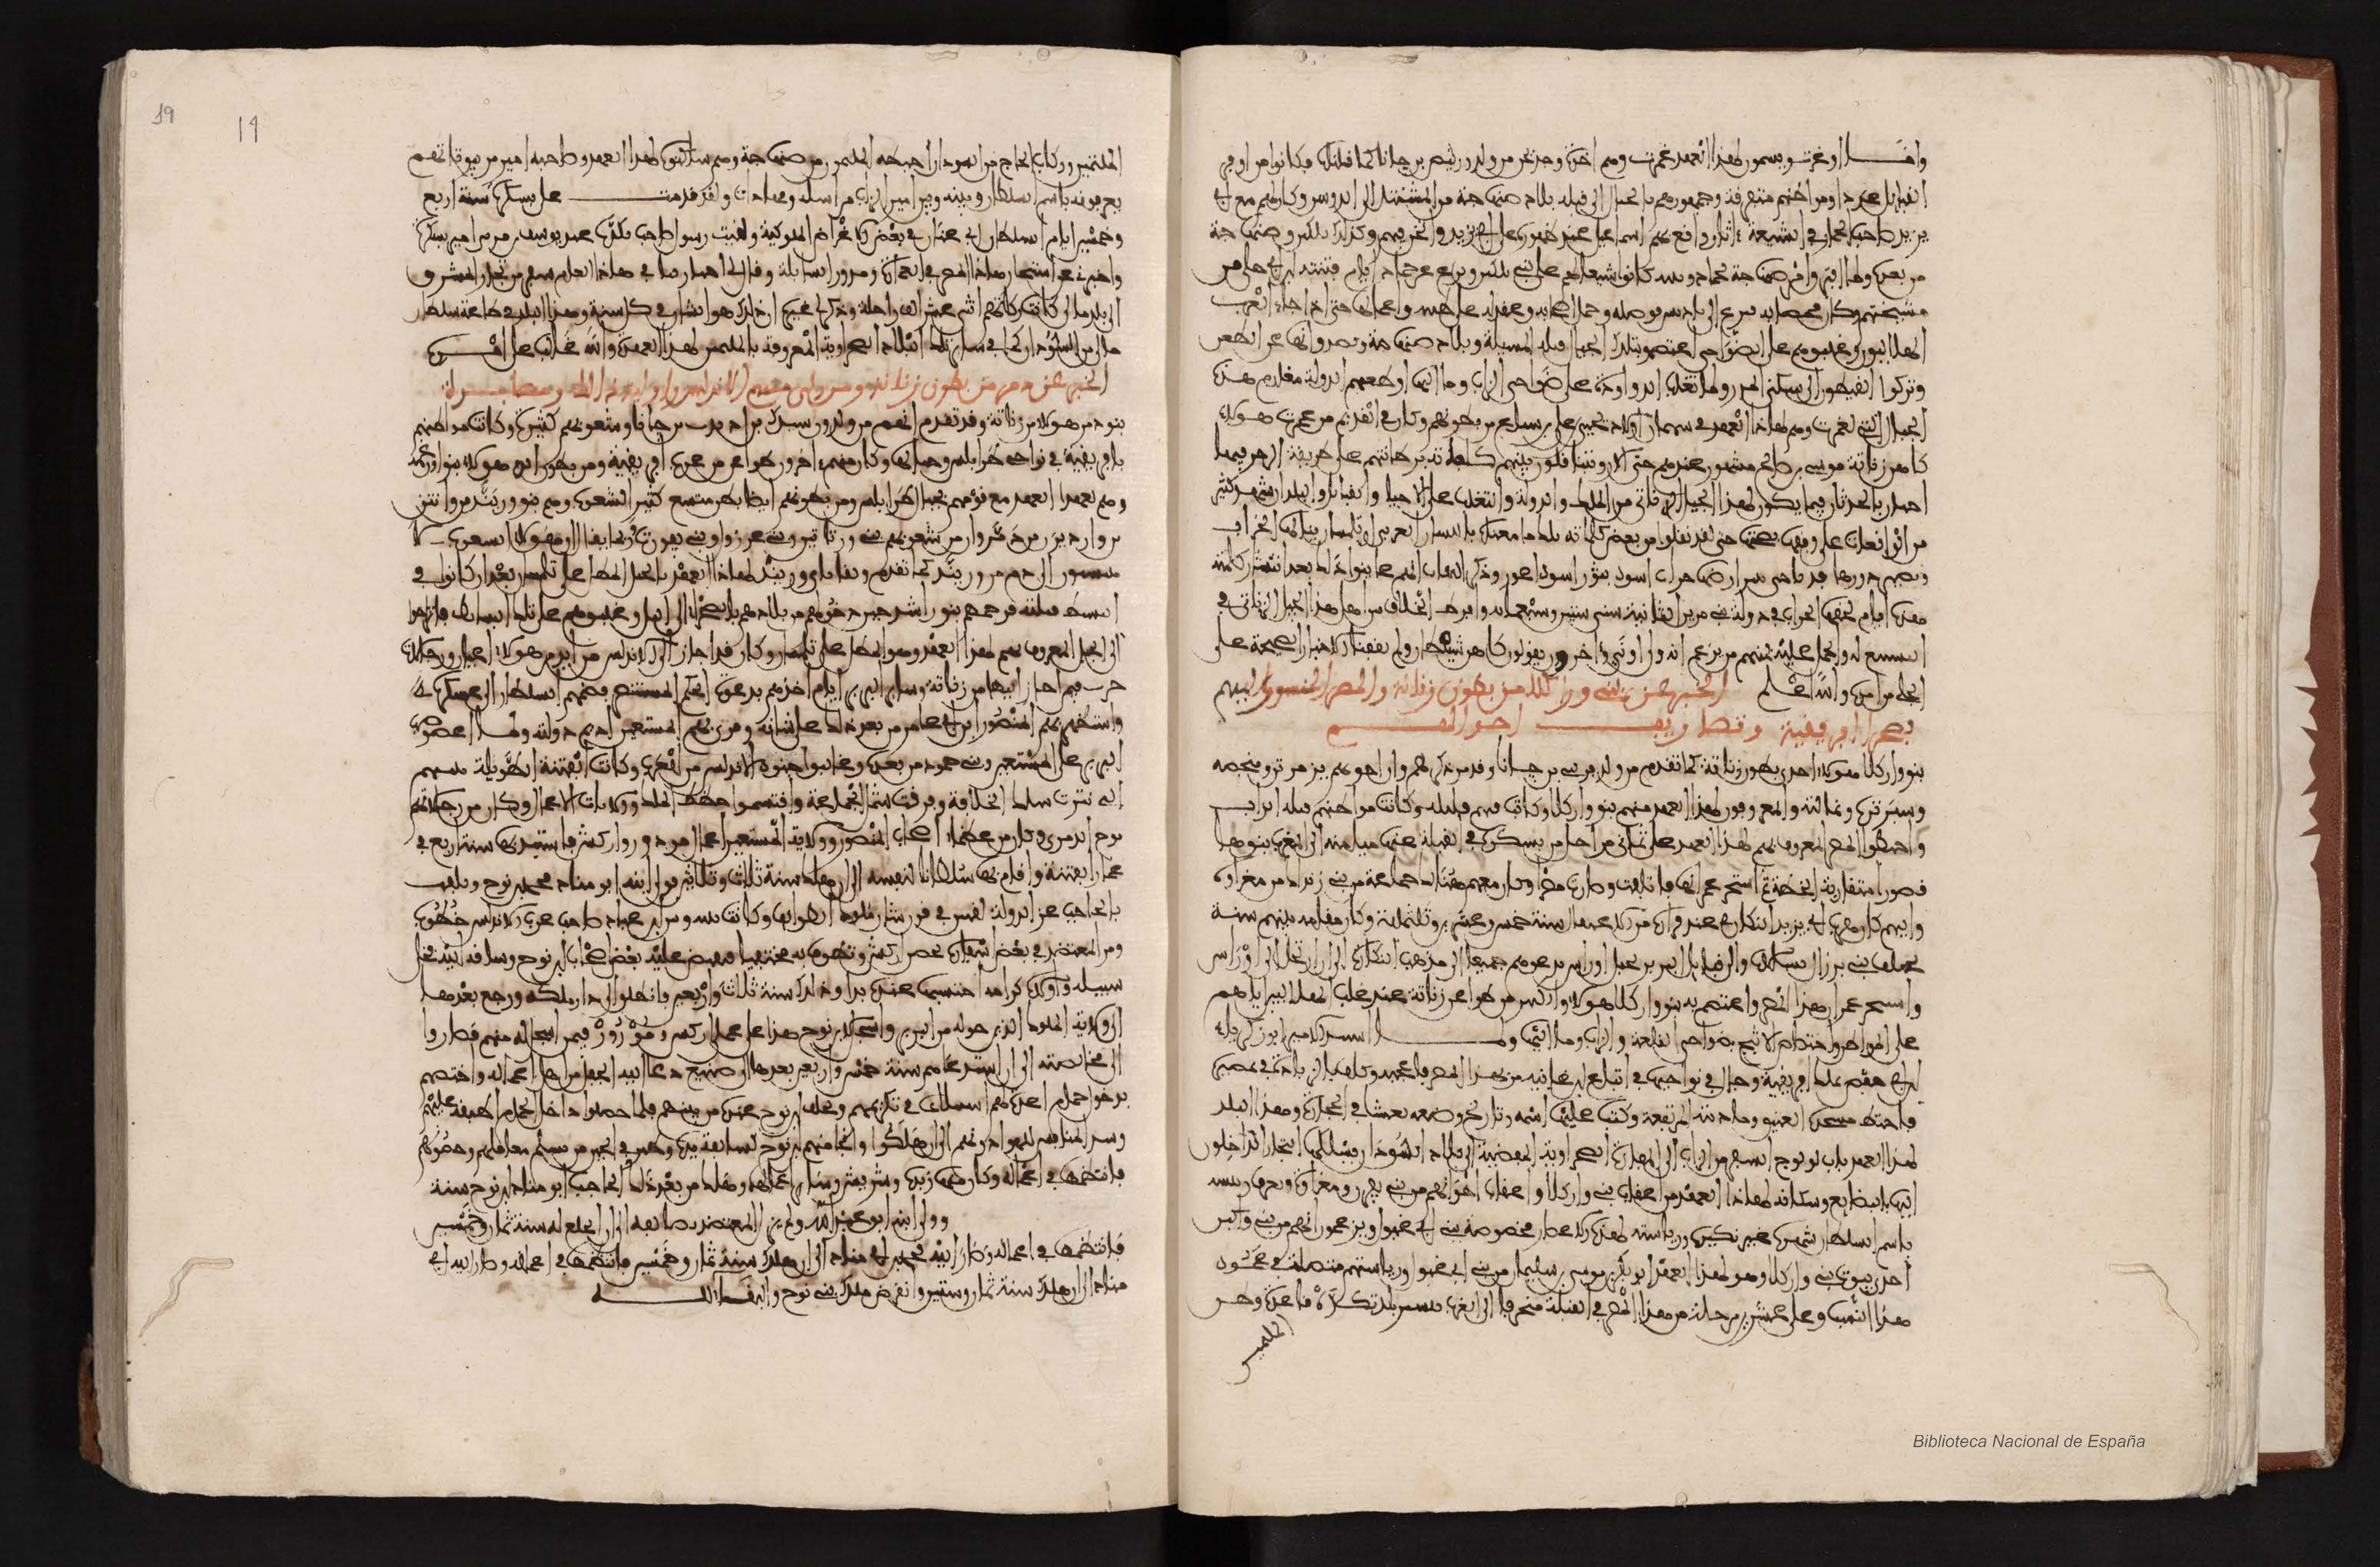 اوغمرت ويسمون لهذا العهد غمرت وهم اخوة وجديجن من ولد ورتنيص بن جانا كما قلناه فكانوا من اوفر
القبايل عددا ومواطنهم متفرقة وجمهورهم بالجبال الى قبلة بلاد صنهاجة من المشنتل الى الدوسن وكان لهم مع ابي
يزيد صاحب الحمار في الشيعة اثار واوقع بهم اسماعيل عند ظهوره على ابي يزيد واثخن فيهم وكذلك بلكين وصنهاجة
من بعده ولما افترق امر صنهاجة بحماد وبنيه كانوا شيعا لهم على بني بلكين ونزع عن حماد ايام فتنته ابن ابي حلى من
مشيختهم وكان مختصا به الى باديس فوصله وحمل اصحابه وعقد له على طبنة واعمالها حتى اذا جاء العرب
الهلاليون وغلبوهم على الضواحي اعتصموا بتلك الجبال قبلة المسيلة وبلاد صنهاجة وقعدوا بها عن الظعن
وتركوا القيطون الى سكنى المدن ولما تغلب الدواودة على ضواحي الزاب وما اليها اقطعتهم الدولة مغارم هذه
الجبال التي لغمرت وهم لهذا العهد في سهمان اولاد يحيى بن علي بن سباع من بطونهم وكان في القديم من غمرت هولاء
كاهن زناتة موسى بن صالح مشهور عندهم حتى الان ويتناقلون بينهم كلماته برطانتهم على طريقة الرجز فيها
اخبار بالحدثان فيما يكون لهذا الجيل الزناتي من الملك والدولة والتغلب على الاحياء والقبايل والبلدان شهد كثير
من الواقعات على وفقها بصحتها حتى لقد نقلوا من بعض كلماته تلك ما معناه باللسان العربي ان تلمسان ينالها الخراب
وتصير دورها فدنا حتى يثير ارضها حراث اسود بثور اسود اعور وذكر الثقات انهم عاينوا ذلك بعد انتشار كلمته
هذه ايام لحقها الخراب في دولة بني مرين الثانية سني ستين وسبعماية وافرط الخلاف بين اهل هذا الجيل الزناتي في
التشيع له والحمل عليه فمنهم من يزعم انه ولي او نبي واخرون يقولون كاهن شيطان ولم تقفنا الاخبار الصحيحة على
الجلي من امره والله اعلم الخبر عن بني واركلا من بطون زناتة والمصر المنسوب اليهم
بصحرا افريقية وتصاريف احوالهم
بنو واركلا هولاء احدى بطون زناتة كما تقدم من ولد فرني بن جانا وقد مر ذكرهم وان اخوتهم يزمرتن ومنجصة
وسبرترة ونمالتة والمعروفون لهذا العهد منهم بنو واركلا وكانت فيهم قلة وكانت مواطنهم قبلة الزاب
واختطوا المصر المعروف بهم لهذا العهد على ثماني مراحل من بسكرة في القبلة عنها ميامنة الى المغرب بنوها
قصورا متقاربة الخطة ثم استبحر عمرانها فاتلفت وصارت مصرا وكان معهم هنالك جماعة من بني زنداك من مغراوة
واليهم كان مهرب ابي يزيد النكاري عند فراره من الاعتقال سنة خمس وعشرين وثلثماية وكان مقامه بينهم سنة
يختلف الى بني برزال بسالات والى قبايل البربر بجبل اوراس يدعوهم جميعا الى مذهب النكارة الى ان ارتحل الى اوراس
واستبحر عمران هذا المصر واعتصم به بنو واركلا هولاء والكثير من ظواعن زناتة عند غلب الهلاليين اياهم
على المواطن واختصاص الاثبج بضواحي القلعة والزاب وما اليها ولما استبد الامير ابو زكريا
ابن ابي حفص بملك افريقية وجال في نواحيها في اتباع ابن غانية مر بهذا المصر فاعجبه وكلف بالزيادة في تمصيره
فاختط مسجده العتيق وماذنته المرتفعة وكتب عليها اسمه وتاريخ وضعه نقشا في الحجارة وهذا البلد
لهذا العهد باب لولوج السفر من الزاب الى المفازة الصحراوية المفضية الى بلاد السودان يسلكها التجار الداخلون
اليها بالبضايع وسكانه لهذا العهد من اعقاب بني واركلا واعقاب اخوانهم من بني يفرن ومغراوة ويعرف رئيسه
باسم السلطان شهرة غير نكيرة ورياسته لهذه الاعصار مخصوصة ببني ابي غبول ويزعمون انهم من بني واكير
احدى بيوت بني واركلا وهو لهذا العهد ابو بكر بن موسى بن سليمان من بني ابي غبول ورياستهم متصلة في عمود
هذا النسب وعلى عشرين مرحلة من هذا المصر في القبلة منحرفا الى الغرب يسير بلد تكدة قاعدة وطن
الملثمين
19
19
الملثمين وركاب الحاج من السودان اختطه الملثمون من صنهاجة وهم ساكنوه لهذا العهد وصاحبه امير من بيوتاتهم
يعرفونه باسم السلطان وبينه وبين امير الزاب مراسلة ومهاداة ولقد قدمت على بسكرة سنة اربع
وخمسين ايام السلطان ابي عنان في بعض الاغراض الملوكية ولقيت رسول صاحب تكدة عند يوسف بن مزني امير بسكرة
واخبرني عن استبحار هذا المصر في العمارة ومرور السابلة وقال لي اجتاز بنا في هذا العام سفر من تجار المشرق
الى بلد مالي كانت ركابهم اثني عشر الف راحلة وذكر لي غيره ان ذلك هو الشان في كل سنة وهذا البلد في طاعة سلطان
مالي من السودان كما في ساير تلك البلاد الصحراوية المعروفة بالملثمين لهذا العهد والله غالب على امره
الخبر عن دمر من بطون زناتة ومن ولي منهم بالاندلس واولية ذلك ومصايره
بنو دمر هولاء من زناتة وقد تقدم انهم من ولد ورسيك بن اديدت بن جانا وشعوبهم كثيرة وكانت مواطنهم
بافريقية في نواحي طرابلس وجبالها وكان منهم اخرون ظواعن من عرب افريقية ومن بطون بني دمر هولاء بنو ورغمة
وهم لهذا العهد مع قومهم بجبال طرابلس ومن بطونهم ايضا بطن متسع كثير الشعوب وهم بنو ورنيد بن وانتن
بن وارديرن بن دمر وان من شعوبهم بني ورتاتين وبني عزرول وبني تفورت وربما يقال ان هولاء الشعوب لا
ينتسبون الى دمر من ورنيد كما تقدم وبقايا بني ورنيد لهذا العهد بالجبل المطل على تلمسان بعد ان كانوا في
البسيط قبلته فزحمهم بنو راشد حين دخولهم من بلادهم بالصحراء الى التل وغلبوهم على تلك البسايط فانزاحوا
الى الجبل المعروف بهم لهذا العهد وهو المطل على تلمسان وكان قد اجاز الى الاندلس من بني دمر هولاء اعيان ورجالات
حرب فيمن اجاز اليها من زناتة وساير البربر ايام اخذهم بدعوة الحكم المستنصر فضمهم السلطان الى عسكره
واستظهر بهم المنصور بن ابي عامر من بعد ذلك على شانه وقوى بهم المستعين اديم دولته ولما اعصوصب
البربر على المستعين وبني حمود من بعده وغالبوا جنود الاندلس من العرب وكانت الفتنة الطويلة بينهم
التي نثرت سلك الخلافة وفرقت شمل الجماعة واقتسموا خطط الملك وولايات الاعمال وكان من رجالاتهم
نوح الدمري وكان من عظماء اصحاب المنصور وولاه المستعين اعمال مورور واركش فاستبد بها سنة اربع في
غمار الفتنة واقام بها سلطانا لنفسه الى ان هلك سنة ثلاث وثلاثين فولي ابنه ابو مناد محمد بن نوح وتلقب
بالحاجب عز الدولة لقبين في قرن شان ملوك الطوايف وكانت بينه وبين ابن عباد صاحب غرب الاندلس خطوب
ومر المعتضد في بعض اسفاره بحصن اركش وتطوف به مختفيا فقبض عليه بعض اصحاب ابن نوح وساقه اليه فخلى
سبيله واولاه كرامة احتسبها عنده يدا وذلك سنة ثلاث واربعين فانطلق الى دار ملكه ورجع بعدها
الى ولاية الملوك الذين حوله من البربر واسجل لابن نوح هذا على عملي اركش ومورور فيمن اسجل له منهم فصاروا
الى مخالصته الى ان استدعاهم سنة خمس واربعين بعدها الى صنيع دعا اليه الجفلى من اهل اعماله واختصهم
بدخول حمام اعده لهم استبلاغا في تكريمهم وتخلف ابن نوح عنده من بينهم فلما حصلوا داخل الحمام اطبقه عليهم
وسد المنافس للهواء دونهم الى ان هلكوا ونجا منهم ابن نوح لسابقة يده وطير في الحين من تسلم معاقلهم وحصونهم
فانتظمها في اعماله وكان منها رندة وشريش وساير اعمالها وهلك من بعد ذلك الحاجب ابو مناد بن نوح سنة
وولي ابنه ابو عبد الله ولم يزل المعتضد يضايقه الى ان انخلع له سنة ثمان وخمسين
فانتظمها في اعماله وصار اليه محمد بن ابي مناد الى ان هلك سنة ثمان وخمسين فانتظمها في اعماله وصار اليه ابن ابي
مناد الى ان هلك سنة ثمان وستين وانقرض ملك بني نوح والبقاء لله
Biblioteca Nacional de España